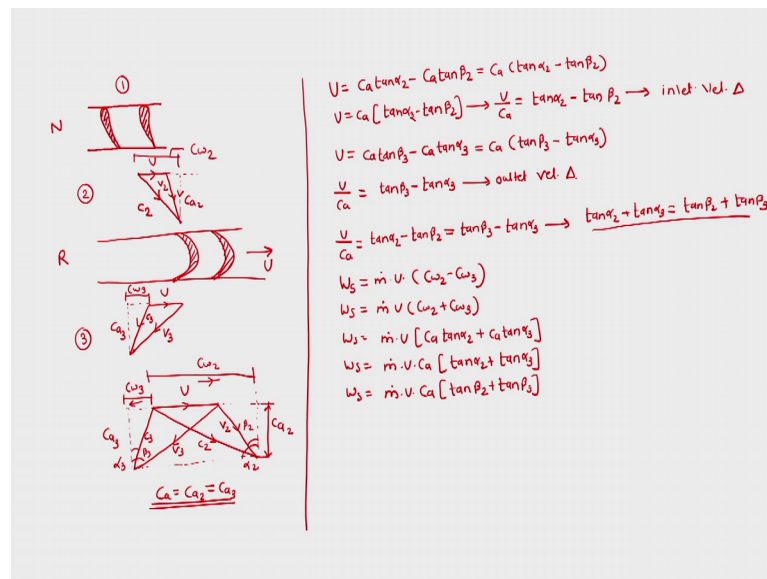 ①
N
Cω₂
U
V₂
C₂
Ca₂
②
R
U
Cω₃
U
Ca₃
C₃
V₃
③
Cω₂
Cω₃
U
Ca₃
C₃
V₃
C₂
V₂
β₂
Ca₂
α₃
β₃
α₂
Ca = Ca₂ = Ca₃
U = Ca tanα₂ - Ca tanβ₂ = Ca (tanα₂ - tanβ₂)
U = Ca [tanα₂ - tanβ₂] → U/Ca = tanα₂ - tanβ₂ → inlet. Vel. Δ
U = Ca tanβ₃ - Ca tanα₃ = Ca (tanβ₃ - tanα₃)
U/Ca = tanβ₃ - tanα₃ → outlet vel. Δ.
U/Ca = tanα₂ - tanβ₂ = tanβ₃ - tanα₃ → tanα₂ + tanα₃ = tanβ₂ + tanβ₃
Ws = ṁ. U. (Cω₂ - Cω₃)
Ws = ṁ U (Cω₂ + Cω₃)
Ws = ṁ. U [Ca tanα₂ + Ca tanα₃]
Ws = ṁ. U. Ca [tanα₂ + tanα₃]
Ws = ṁ. U. Ca [tanβ₂ + tanβ₃]